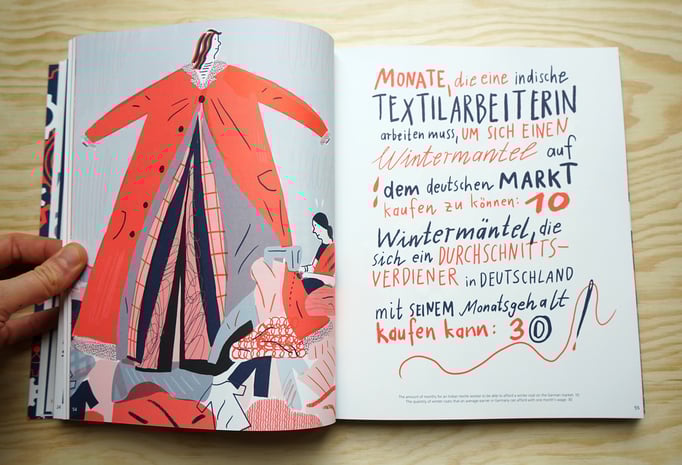 MONATE, die eine indische
TEXTILARBEITERIN
arbeiten muss, UM SICH EINEN
Wintermantel auf
dem deutschen MARKT
kaufen zu können: 10
Wintermäntel, die
sich ein DURCHSCHNITTS-
VERDIENER in DEUTSCHLAND
mit SEINEM Monatsgehalt
kaufen kann: 30
The amount of months for an Indian textile worker to be able to afford a winter coat on the German market: 10
The quantity of winter coats that an average earner in Germany can afford with one month's wage: 30
54
55